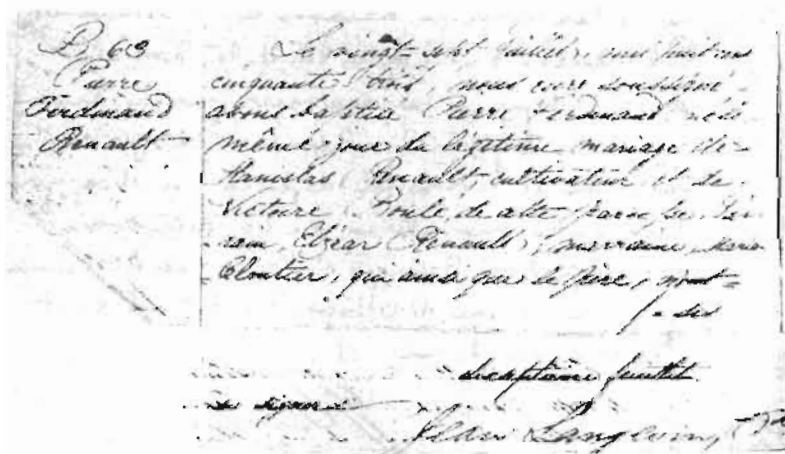 B 63
Pierre
Ferdinand
Renault
Le vingt-sept juillet, mil huit cent
cinquante trois nous curé soussigné
avons baptisé Pierre Ferdinand né le
même jour du légitime mariage de
Stanislas Renault, cultivateur et de
Victoire Poulé, de cette paroisse. Par-
rain, Elzéar Renault, marraine, Marie
Cloutier, qui ainsi que le père, n'ont
feuillet
signer
Langevin,